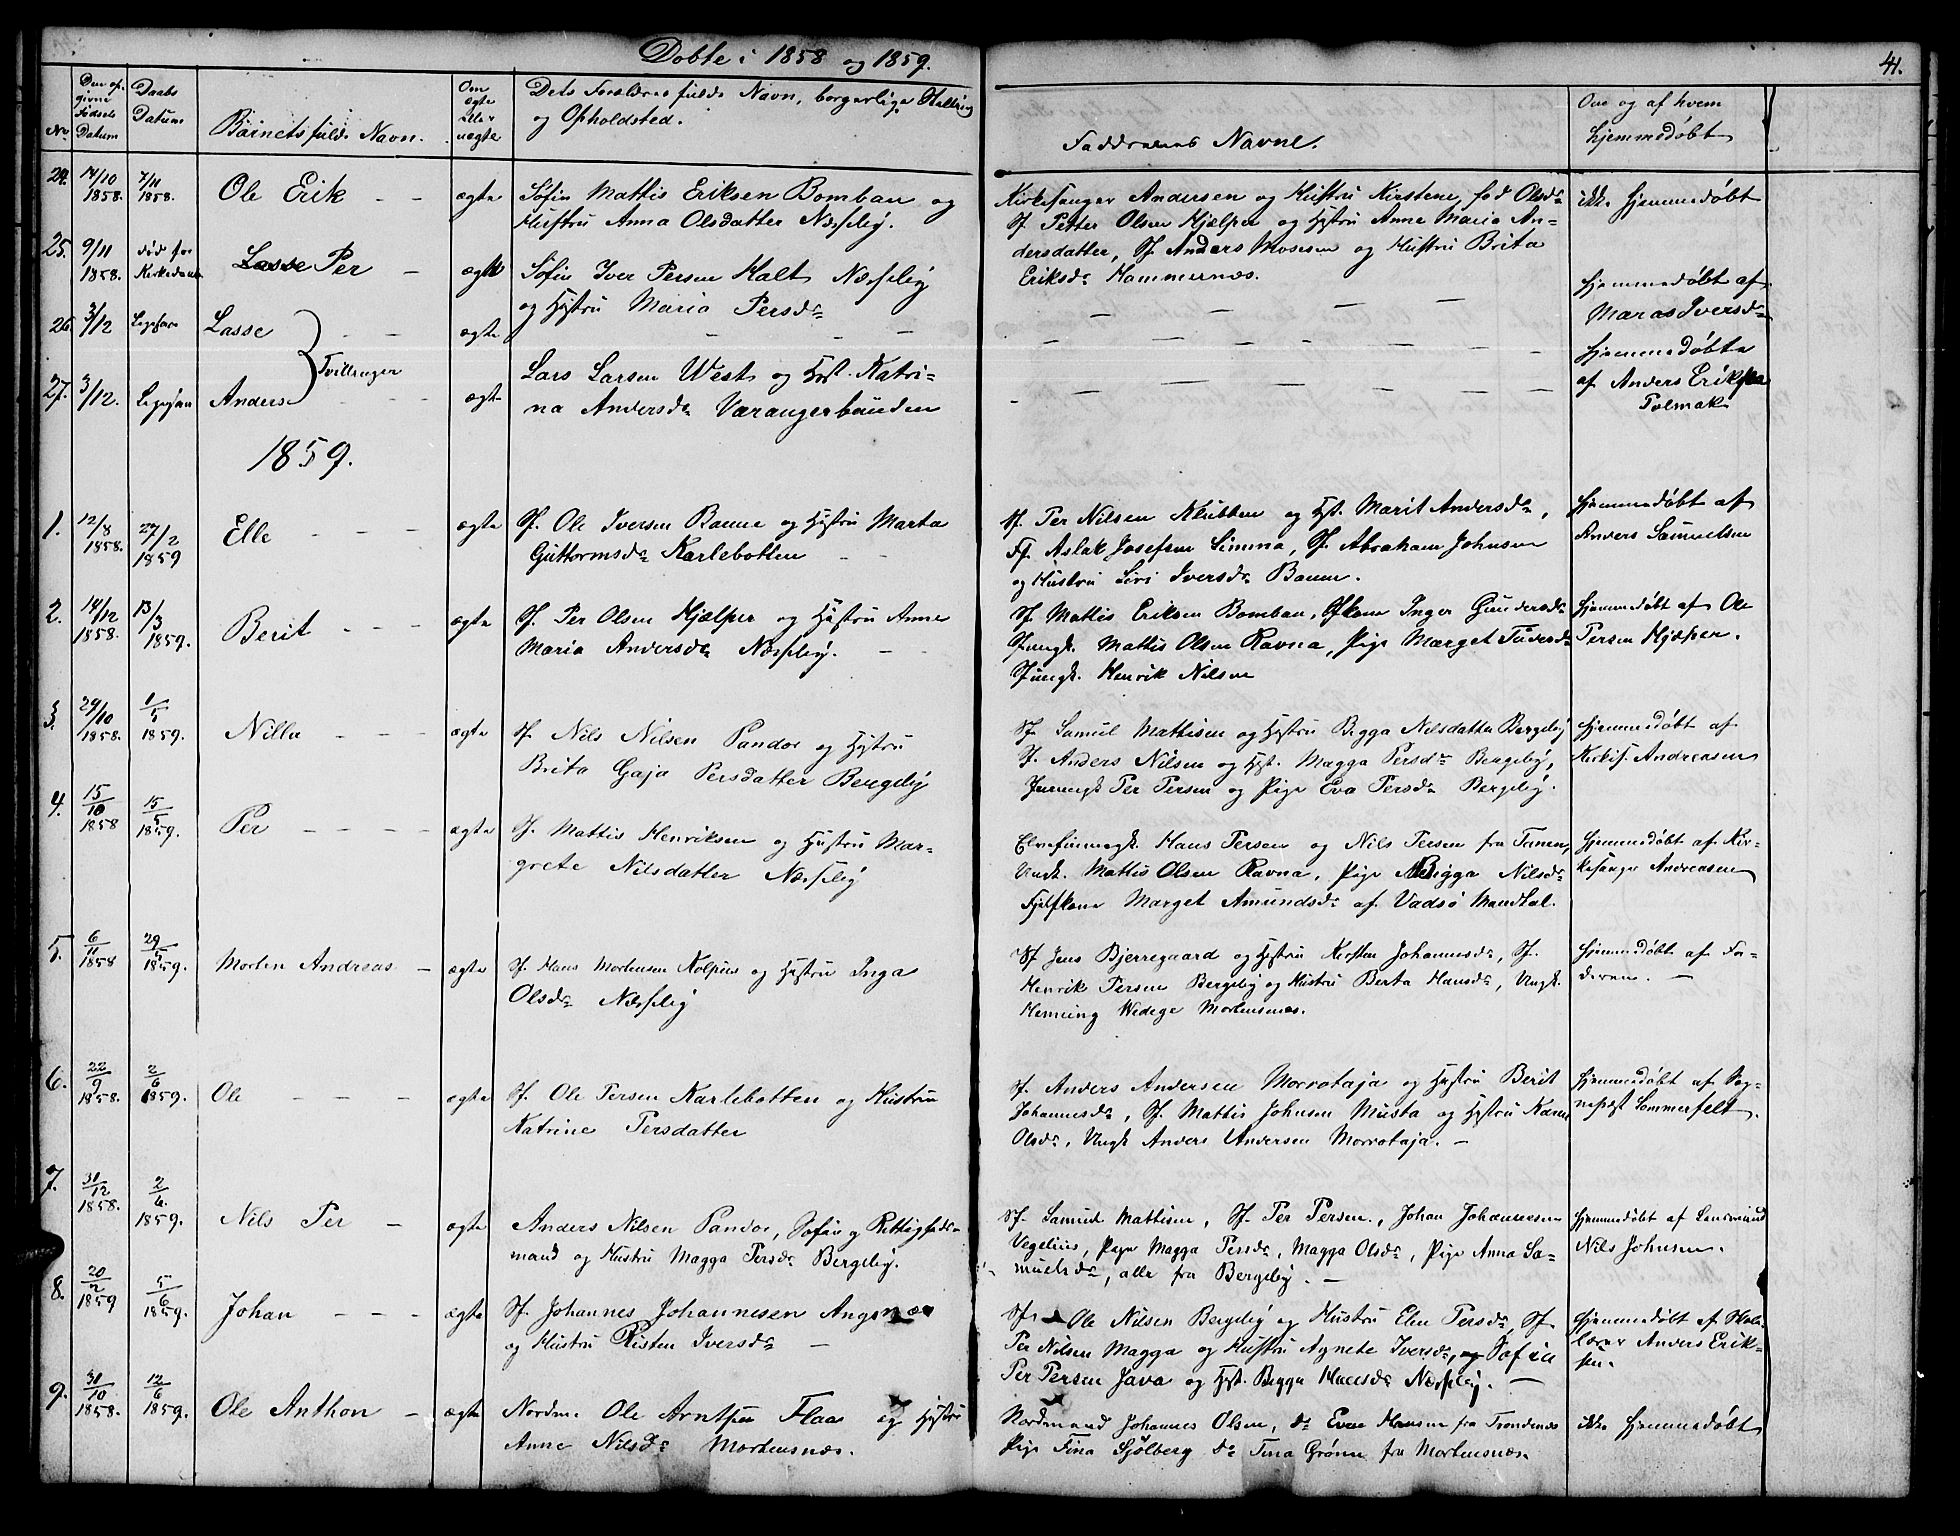 Døbte i 1858 og 1859.
41.
No
Den opgivne Fødsels Datum
Daabs Datum
Barnets fulde Navn.
Om ægte eller uægte
Dets Forældres fulde Navn, borgerlige Stilling
og Opholdsted.
Faddrenes Navne.
Om og af hvem
hjemmedøbt
24. 14/10 1858. 7/11 1858. Ole Erik — — ægte
Søfin Mattis Eriksen Bomban og
Hustru Anna Olsdatter Næsseby.
Kirkesanger Andersen og Hustru Kirstene fød Olsdr
Sf. Petter Olsen Hjælper og Hstru Anne Maria An-
dersdatter, Sf. Anders Mosesen og Hustru Brita
Eriksdr Hammernæs.
ikke hjemmedøbt
25. 9/11 1858. død før Kirkedaab Lasse Per — ægte
Søfin Iver Persen Halt Næsseby
og Hstru Maria Persdr
— — — —
hjemmedøbt af
Maras Iversdr
26. 3/12 Ligesaa Lasse — — ægte
Tvillinger
27. 3/12. Ligesaa Anders — — ægte
Lars Larsen West og Hst. Katri-
na Andersdr Varangerbunden
hjemmedøbte
af Anders Eriksen
Polmak
1859.
1. 12/8 1858. 27/2 1859 Elle — — — ægte
Sf. Ole Iversen Banne og Hstru Marta
Guttormsdr Karlebotten — —
Sf. Per Nilsen Klubben og Hst. Marit Andersdr,
Ff. Aslak Josefsen Simma, Sf. Abraham Johnsen
og Hustru Siri Iversdr Banne.
hjemmedøbt af
Anders Samuelsen
2. 14/12 1858. 13/3 1859. Berit — — — ægte
Sf. Per Olsen Hjælper og Hustru Anne
Maria Andersdr Næsseby. — —
Sf. Mattis Eriksen Bomban, Sfkone Inger Gundersdr
Sfungk. Mattis Olsen Ravna, Pige Marget
Sfungk. Henrik Nilsen
hjemmedøbt af Ole
Persen Hjælper.
3. 29/10 1858. 1/5 1859. Nilla — — — ægte
Sf. Nils Nilsen Pandos og Hstru
Brita Gaja Persdatter Bergeby
Sf. Samuel Mattisen og Hstru Begga Nilsdatter Bergeby
Sf. Anders Nilsen og Hst. Magga Persdr Bergeby,
Per Persen og Pige Eva Persdr Bergeby.
hjemmedøbt af
Kirkes. Andreasen
4. 15/10 1858 15/5 1859. Per — — — — ægte
Sf. Mattis Henriksen og Hustru Mar-
grete Nilsdatter Næsseby
Elvefinungk. Hans Persen og Nils Persen fra Tanen,
Ungk. Mattis Olsen Ravna, Pige Bigga Nilsdr
Fjelfkone Marget Amundsdr af Vadsø Mandtal.
hjemmedøbt af Kir-
kesanger Andreasen
5. 6/11 1858 29/5 1859. Morten Andreas — ægte
Sf. Hans Mortensen Kolpus og Hstru Inga
Olsdr Næsseby
Sf. Jens Bjerregaard og Hstru Kirsten Johannesdr, Sf.
Henrik Persen Bergeby og Hustru Berta Hansdr, Ungk.
Henning Wedege Mortensnæs.
hjemmedøbt af Fa-
deren. —
6. 22/9 1858. 2/6 1859. Ole — — — ægte
Sf. Ole Persen Karlebotten og Hustru
Katrine Persdatter
Sf. Anders Andersen Morrotaja og Hstru Berit
Johannesdr, Sf. Mattis Johnsen Musta og Hstru Karen
Olsdr, Ungk Anders Andersen Morrotaja. —
hjemmedøbt af Sog-
nepræst Sommerfelt.
7. 31/12 1858. 2/6. 1859. Nils Per — ægte
Anders Nilsen Pandos, Søfin og Rettigheds-
mand og Hustru Magga Persdr Bergeby.
Sf. Samuel Mattisen, Sf. Per Persen, Johan Johannesen
Vegelius, Pige Magga Persdr, Magga Olsdr, Pige Anna Sa-
muelsdr, alle fra Bergeby. —
hjemmedøbt af Lensmand
Nils Johnsen.
8. 20/2 1859 5/6 1859. Johan — — — ægte
Sf. Johannes Johannesen Angsnæs
og Hustru Risten Iversdr —
Sf. Ole Nilsen Bergeby og Hustru Elen Persdr, Sf.
Per Nilsen Magga og Hustru Agnete Iversdr, og Søfin
Per Persen Java og Hst. Begga Hansdr Næsseby. —
hjemmedøbt af Skole
lærer Anders Erik-
sen.
9. 31/10 1858. 12/6 1859. Ole Anthon — ægte
Nordm. Ole Arntsen Flaa og Hstru
Anne Nilsdr Mortensnæs.
Nordmand Johannes Olsen, do Even Hansen fra Trondenæs
Pige Tina Sjølberg do Tina Grønn fra Mortensnæs
ikke hjemmedøbt